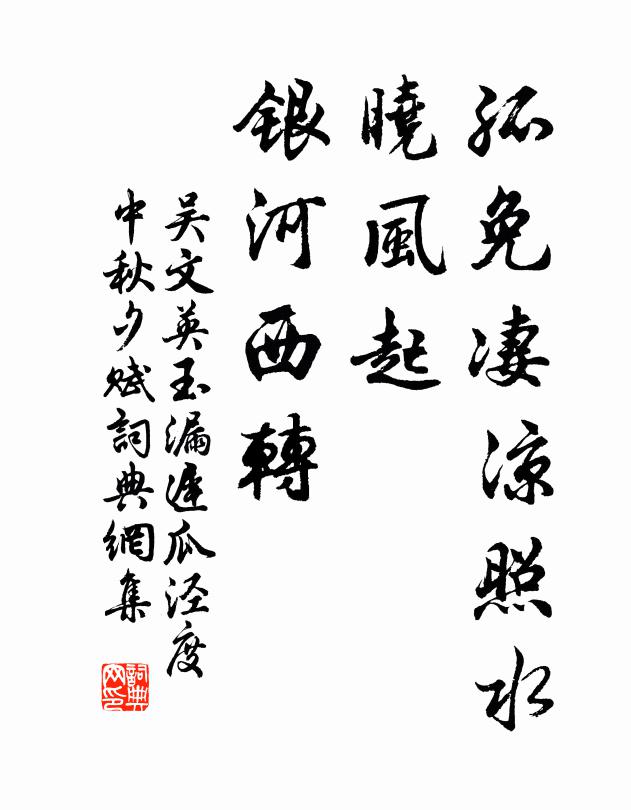 孤兔淒涼照水
曉風起
銀河西轉
吴文英玉漏遲瓜涇度
中秋夕賦詞典網集
詞典網印